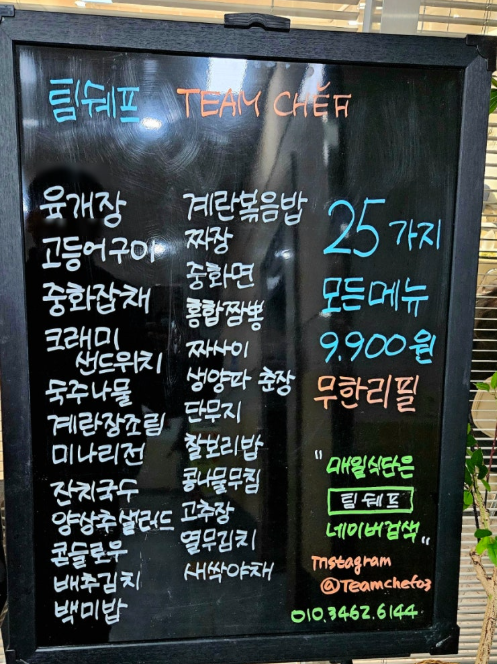 팀쉐프 TEAM CHEF
육개장
고등어구이
중화잡채
크래미
샌드위치
숙주나물
계란장조림
미나리전
잔치국수
양상추샐러드
콘슬로우
배추김치
백미밥
계란볶음밥
짜장
중화면
홍합짬뽕
짜사이
생양파 춘장
단무지
찰보리밥
콩나물무침
고추장
열무김치
새싹야채
25가지
모든메뉴
9.900원
무한리필
"매일식단은
팀쉐프
네이버검색"
Instagram
@Teamchef03
010.3462.6144